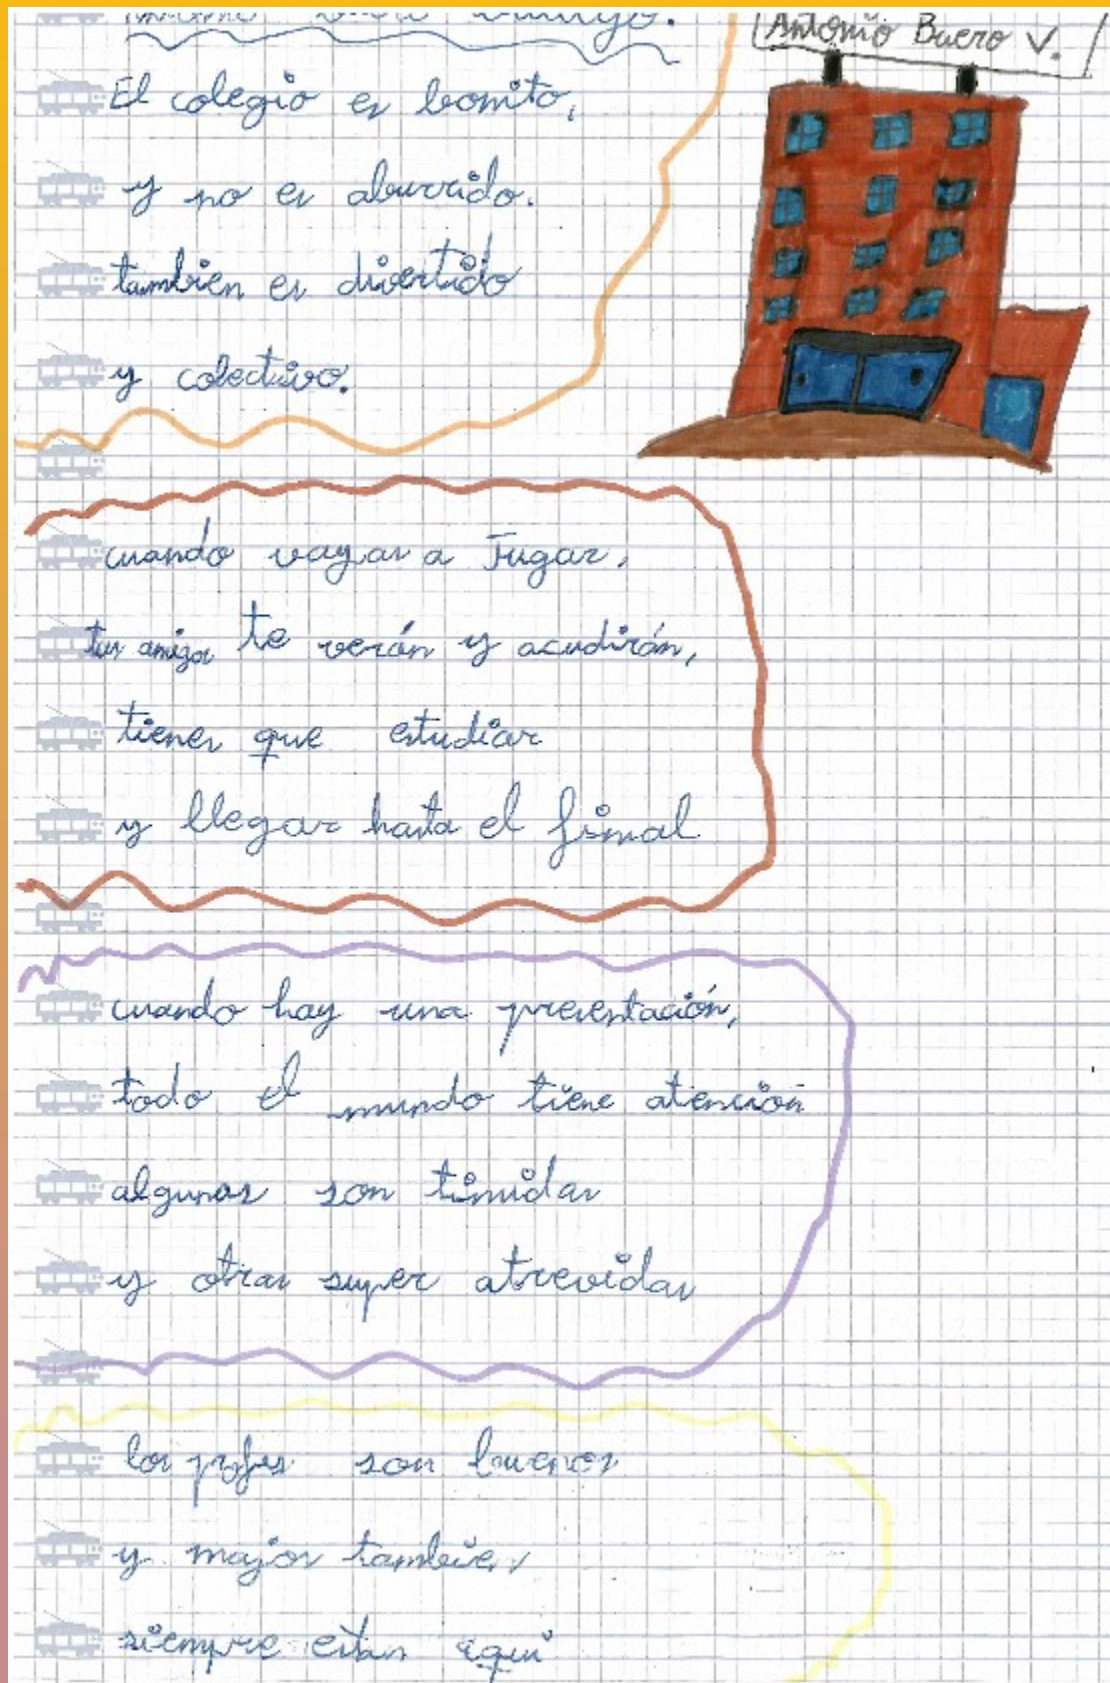 Antonio Buero V.
El colegio es bonito,
y no es aburrido.
tambien es divertido
y colectivo.
cuando vayas a Jugar,
tus amigos te verán y acudirán,
tienes que estudiar
y llegar hasta el final
cuando hay una presentación,
todo el mundo tiene atención
algunas son timidas
y otras super atrevidas
los profes son buenos
y majos tambien,
siempre estan aqui